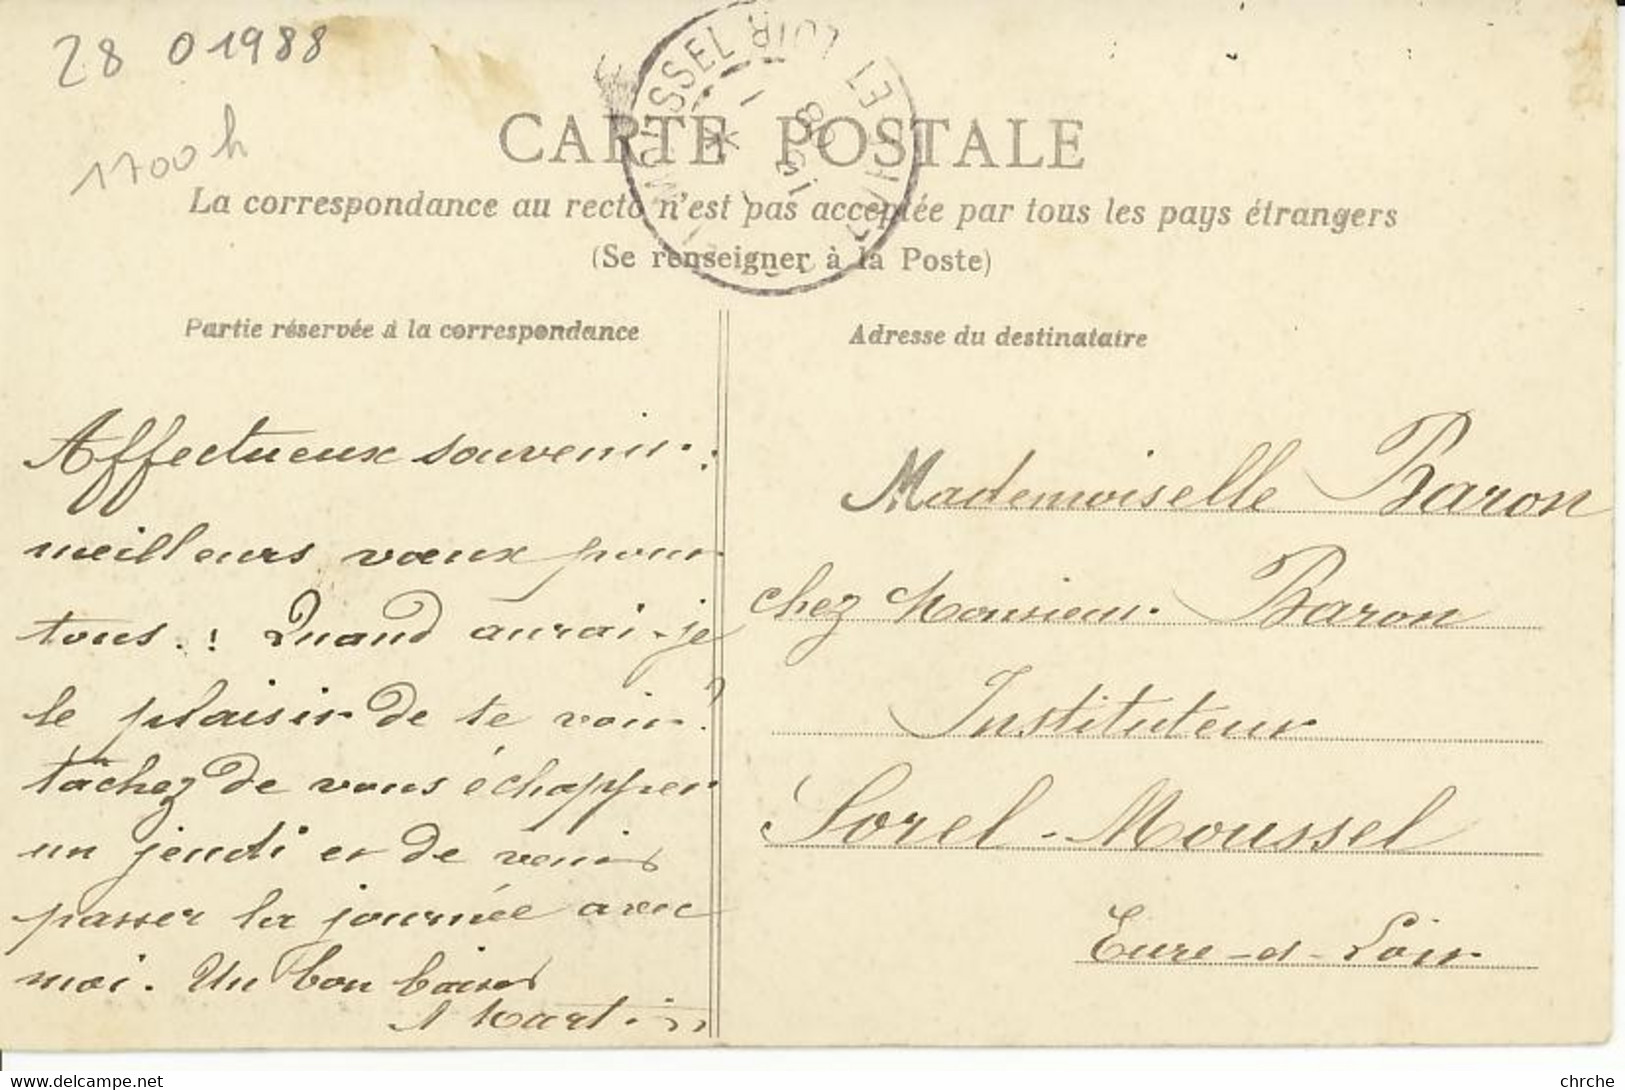 28 01988
1700 h
CARTE POSTALE
La correspondance au recto n'est pas acceptée par tous les pays étrangers
(Se renseigner à la Poste)
MOUSSEL
ET LOIR
Partie réservée à la correspondance
Affectueux souvenir.
meilleurs vœux pour
tous. ! Quand aurai-je
le plaisir de te voir?
tâchez de vous échapper
un jeudi et de venir
passer la journée avec
moi. Un bon baiser
Martin
Adresse du destinataire
Mademoiselle Baron
chez Monsieur Baron
Instituteur
Sorel-Moussel
Eure-et-Loir
© delcampe.net
chrche